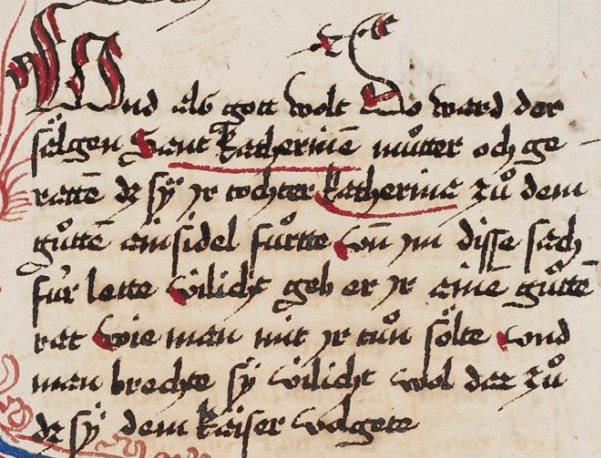 Und als gott wolt Do ward der
sålgen Sant katherinē můtter och ge
rattē dz sÿ jr tochter katherine zů dem
gůttē einsidel fůrtte vn̄ jm disse sach
fúr leitte vilicht geb er jr einē gůttē
rat wie man mit jr tůn sölte vnd
man brechte sÿ vilicht wol dar zů
dz sÿ dem keiser volgete